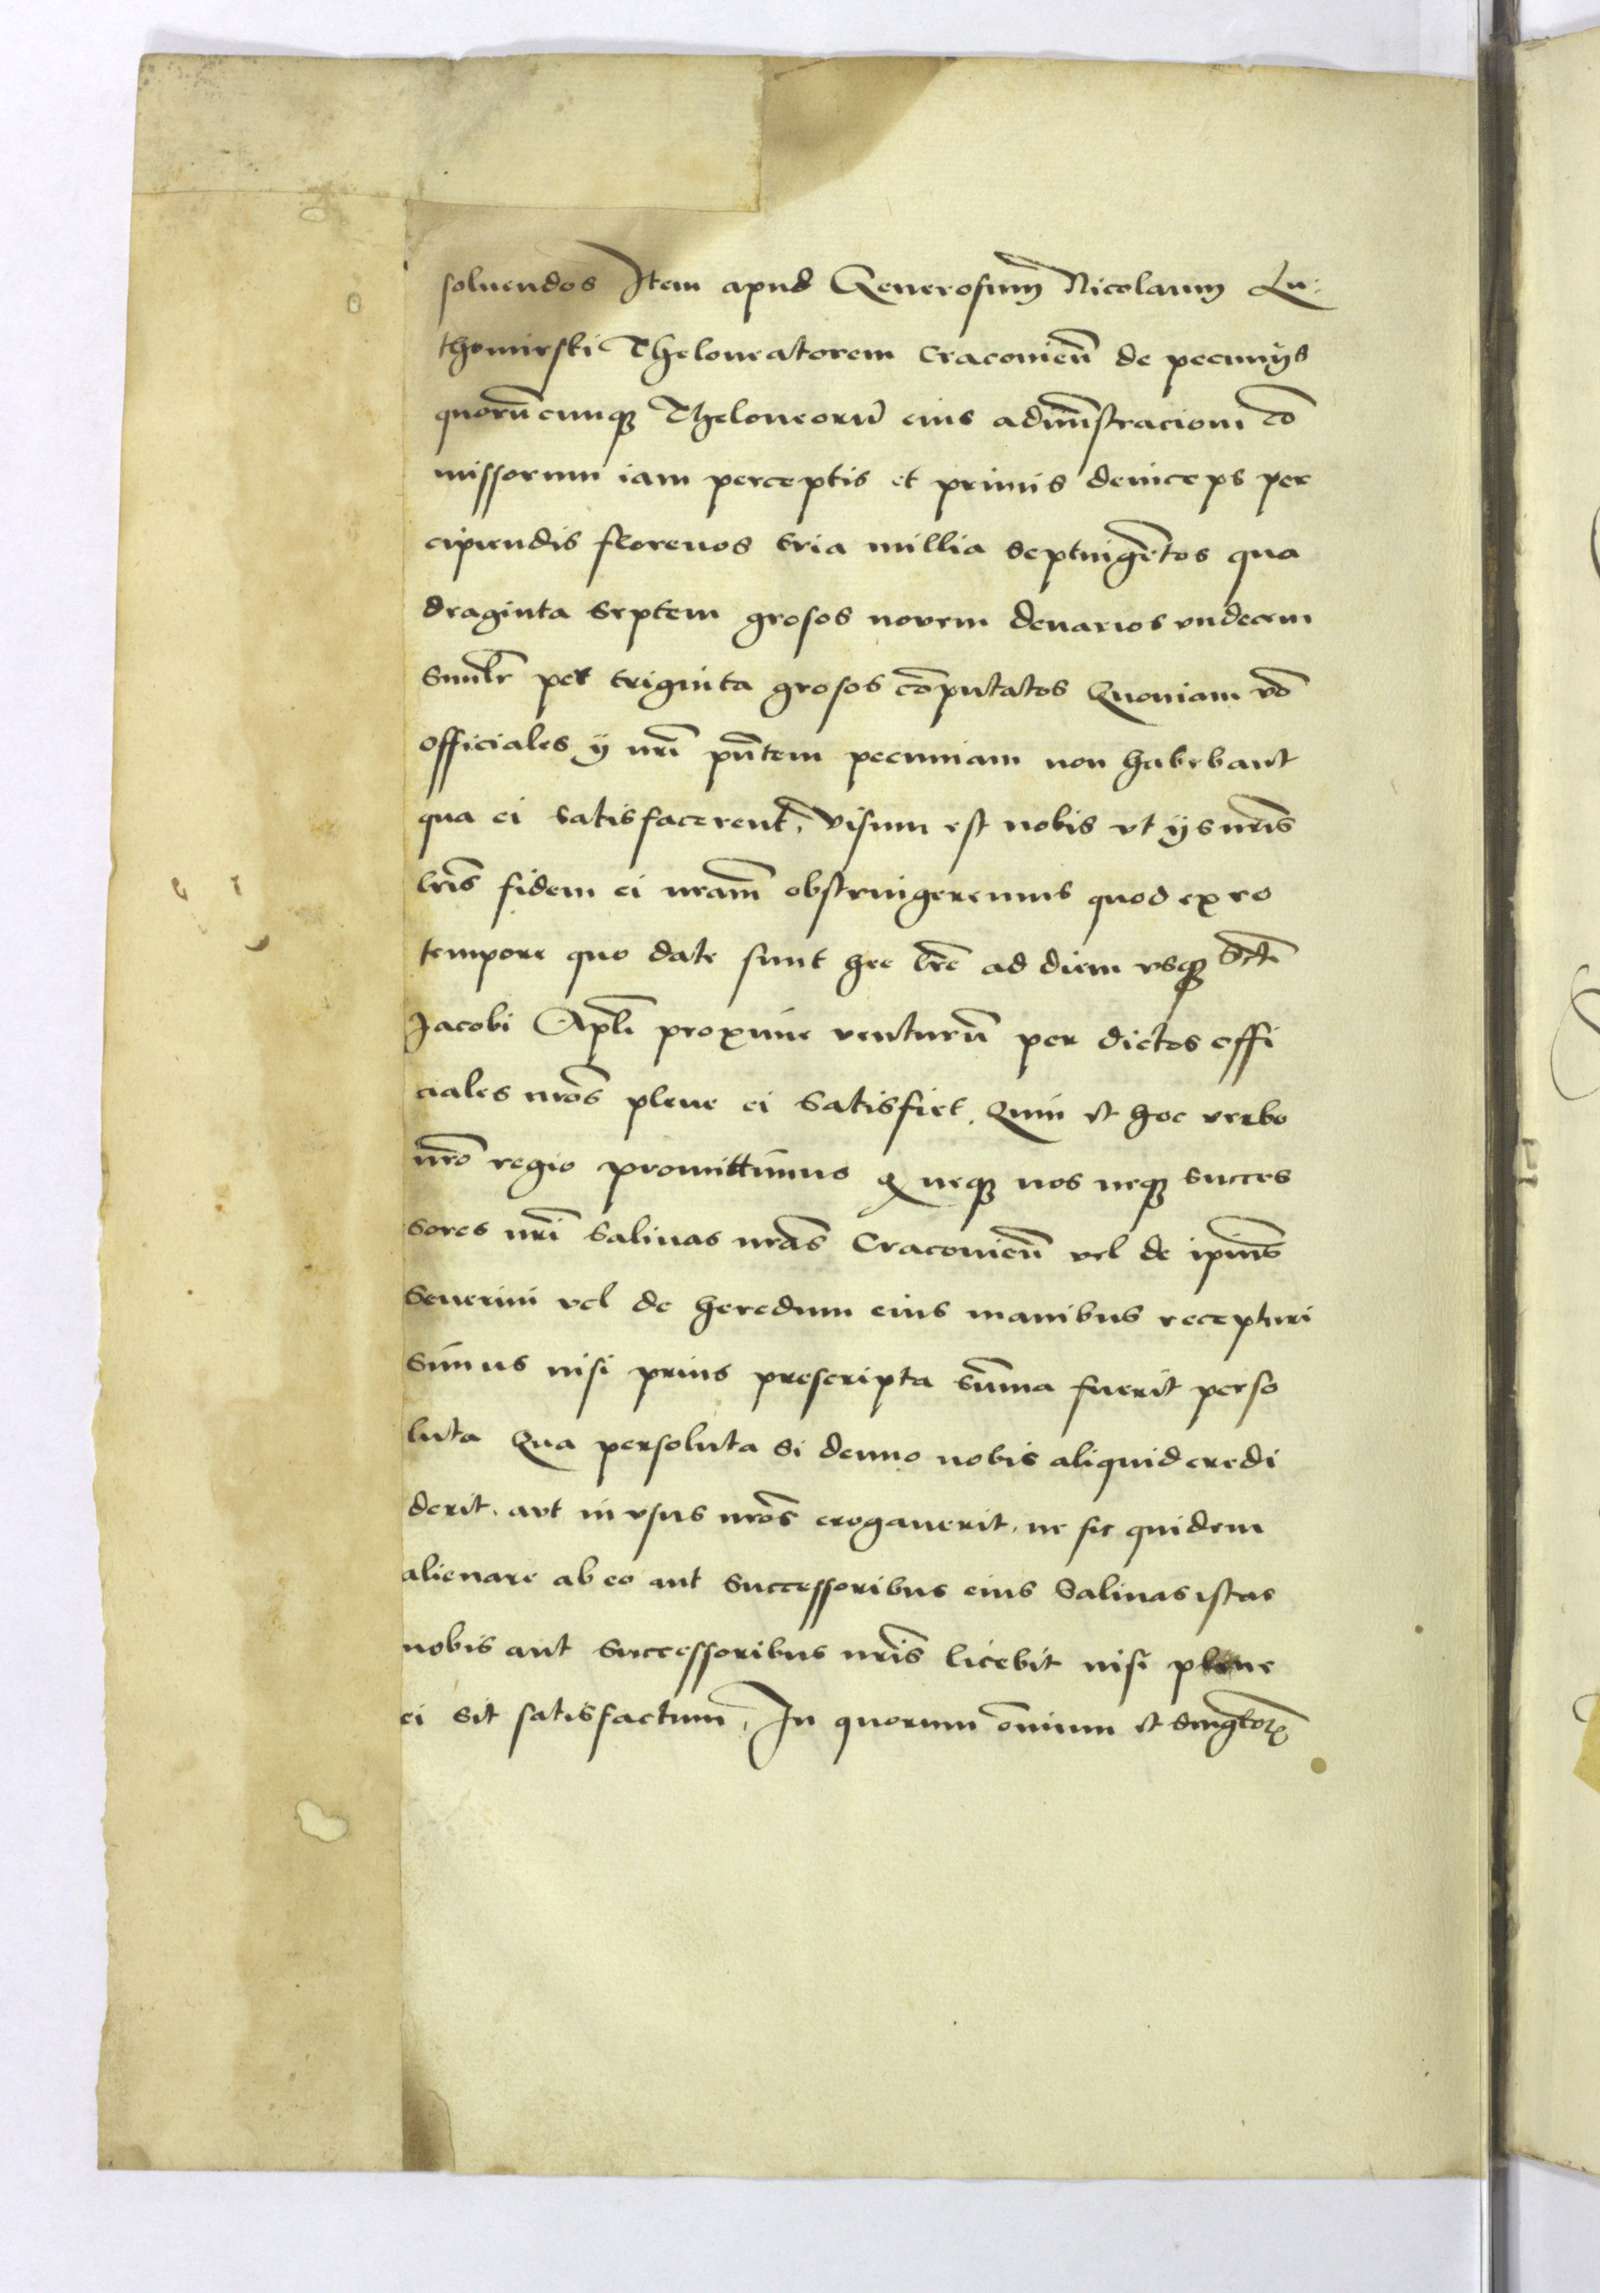 soluendos Item apud Generosum Nicolaum Lu:
thomirski Theloneatorem Cracovieñ de pecunijs
quorūcunq̧ Theloneorū eius admīstracioni cō
missorum iam perceptis et primis deinceps per
cipiendis florenos tria millia septuingētos qua
draginta septem grosos novem denarios vndecem
Similr̄ per triginta grosos cōputatos Quoniam v̄o
officiales ij nr̄i pn̄tem pecuniam non habebant
qua ei satisfacerent, visum est nobis vt ijs nr̄is
lr̄is fidem ei nram̄ obstringeremus quod ex eo
tempore quo date sunt hee lr̄e ad diem vsq̧ Sct̄i
Jacobi Apl̄i proxime venturū per dictos offi
ciales nr̄os plene ei satisfiet. Quin et hoc verbo
nr̄o regio promittimus q̄ neq̧ nos neq̧ succes
sores nr̄i Salinas nrās Cracovieñ vel de ip̄ius
Seuerini vel de heredum eius manibus recepturi
simus nisi prius prescripta sūma fuerit perso
luta Qua persoluta si denuo nobis aliquid credi
derit, aut in vsus nr̄os erogauerit, ne sic quidem
alienare ab eo aut successoribus eius Salinas istas
nobis aut successoribus nr̄is licebit nisi plene
ei sit satisfactum, In quorum ōnium et singlor̄